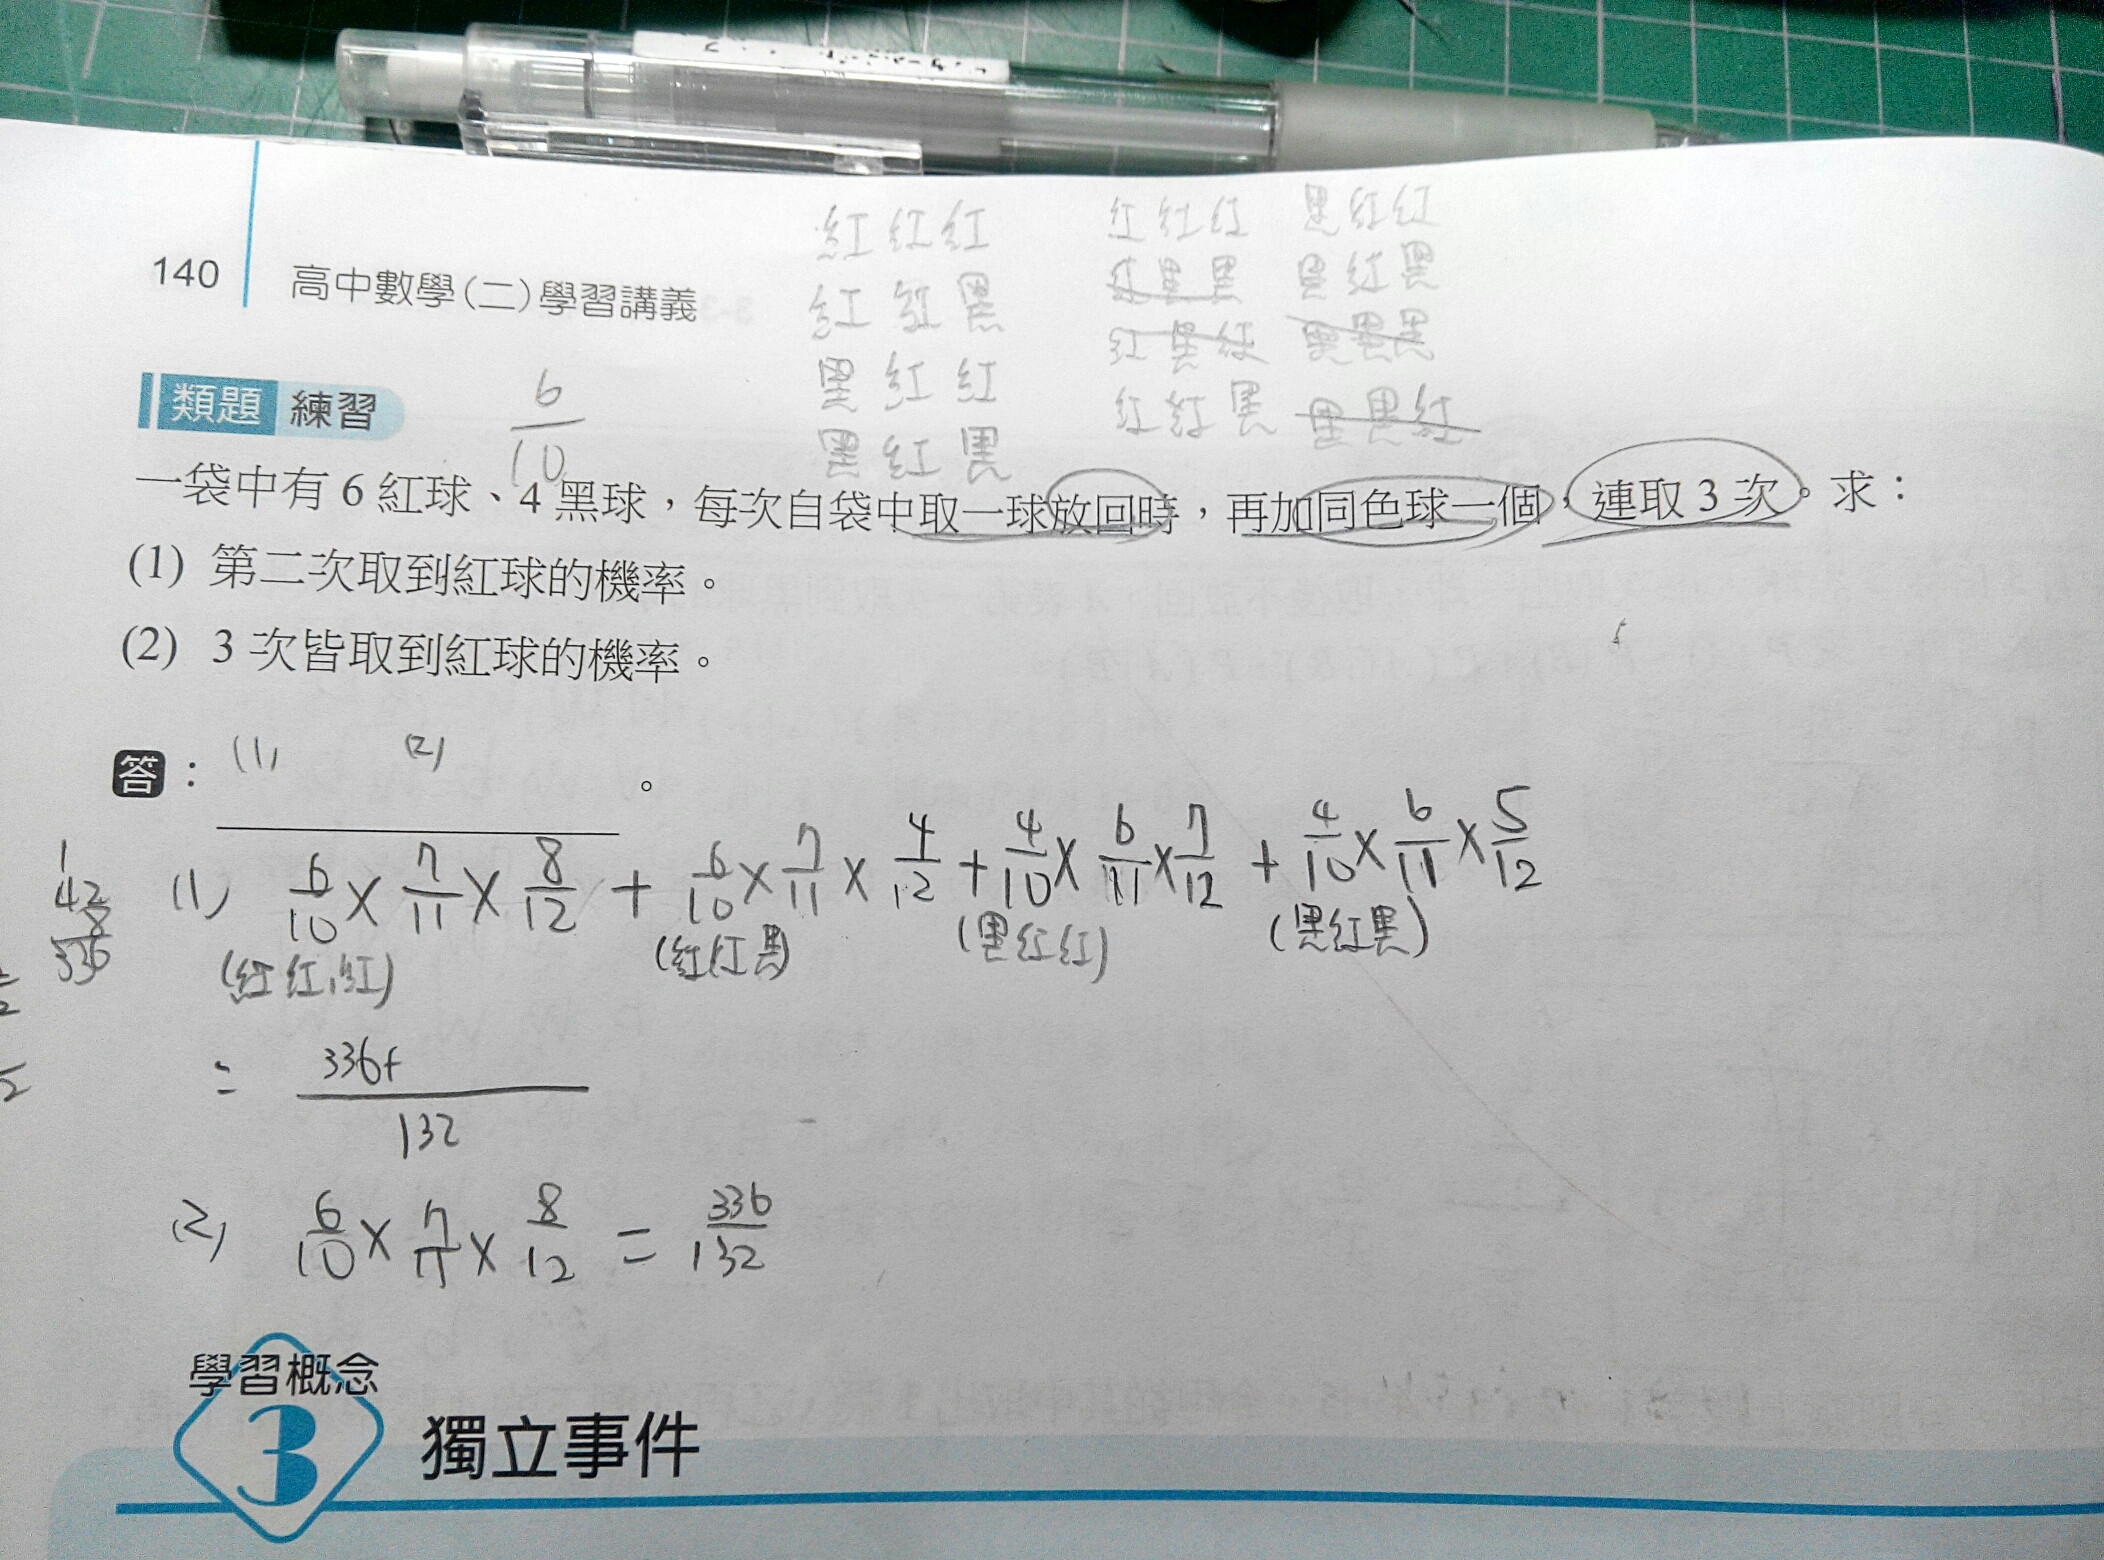 紅紅紅 紅紅紅 黑紅紅
紅紅黑 紅黑黑 黑紅黑
黑紅紅 紅黑紅 黑黑黑
黑紅黑 紅紅黑 黑黑紅
140 高中數學(二)學習講義
類題 練習
6/10
一袋中有 6 紅球、4 黑球，每次自袋中取一球放回時，再加同色球一個，連取 3 次。求：
(1) 第二次取到紅球的機率。
(2) 3 次皆取到紅球的機率。
答：(1) (2) 。
(1) 6/10 × 7/11 × 8/12 + 6/10 × 7/11 × 4/12 + 4/10 × 6/11 × 7/12 + 4/10 × 6/11 × 5/12
(紅紅,紅) (紅紅黑) (黑紅紅) (黑紅黑)
1
42
8
336
= 336+ / 132
(2) 6/10 × 7/11 × 8/12 = 336/132
學習概念
3 獨立事件